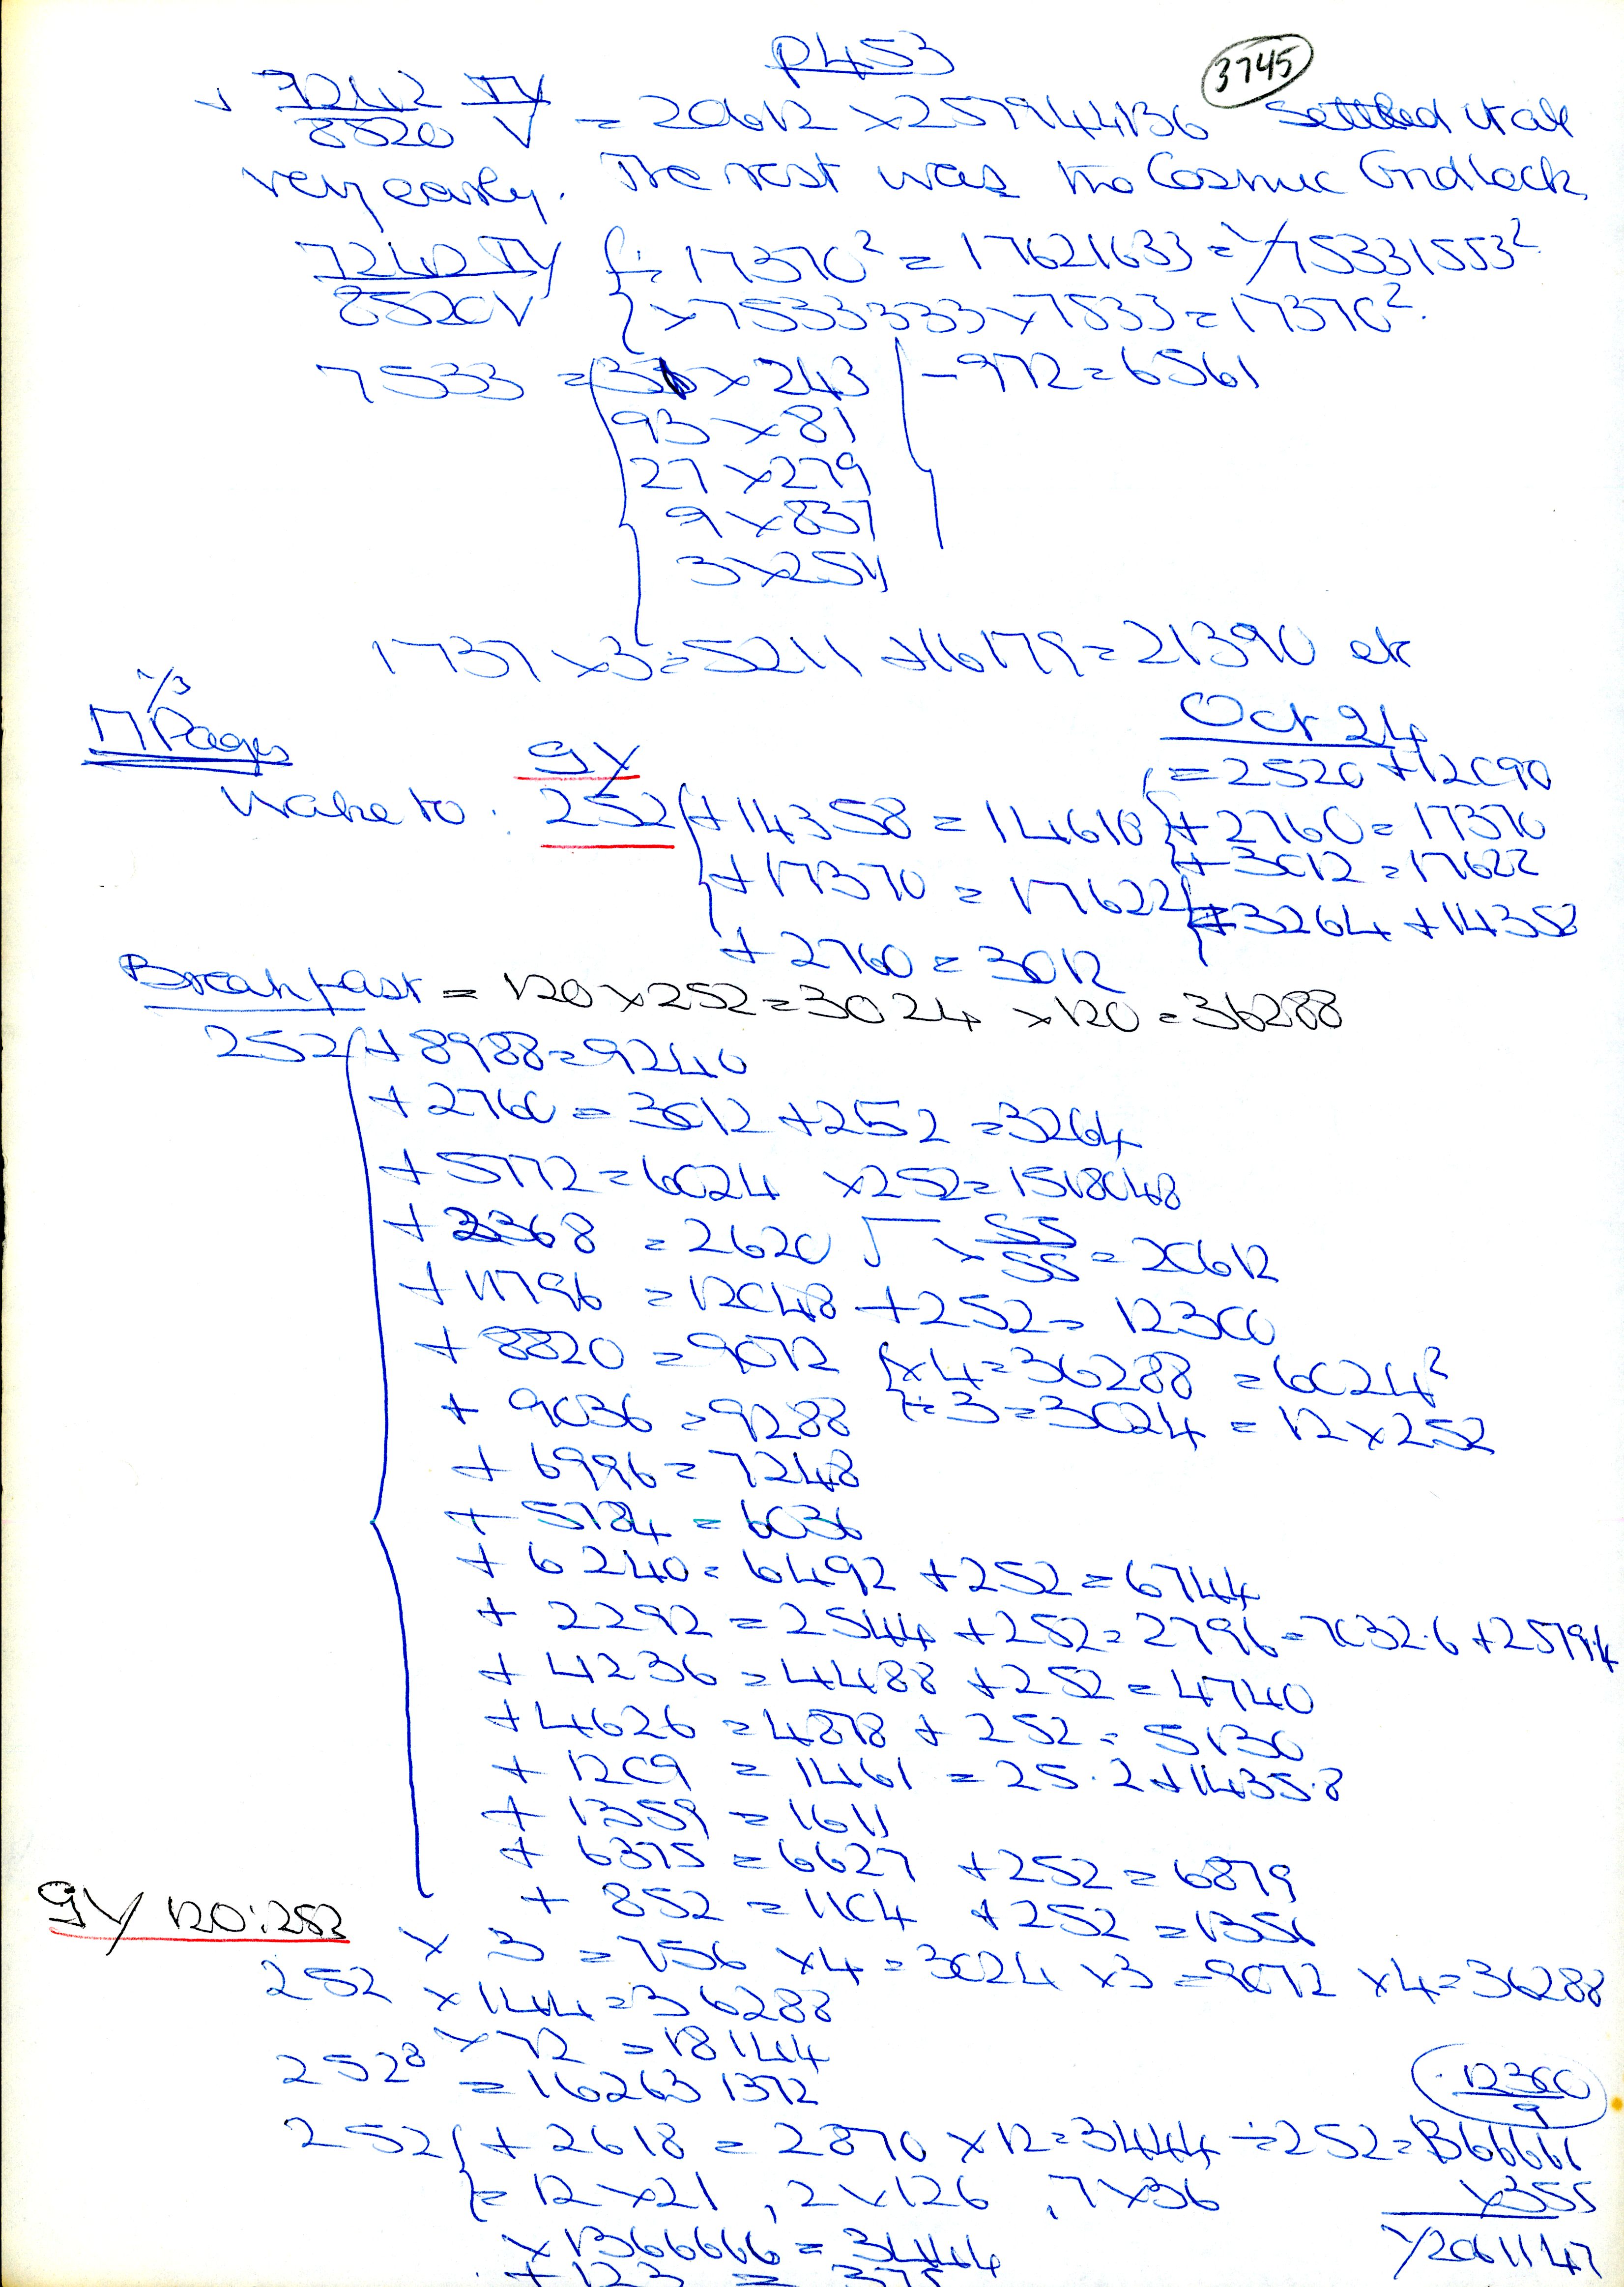 P453
3745
√ 7242 IV / 8520 V = 20612 × 257944136 settled it all
very early. The rest was the Cosmic Gridlock.
7242 IV / 8520V { ÷ 17370² = 17621633 = 1/75331553²
{ × 7533333 × 7533 = 17370².
7533 = 31 × 243 } - 972 = 6561
93 × 81
27 × 279
9 × 837
3 × 2511
1737 × 3 = 5211 + 16179 = 21390 etc
1/3
17 Pages
Oct 24
9Y
= 2520 + 12090
Wake to. 252 { + 14358 = 14610 } + 2760 = 17370
+ 3012 = 17622
+ 17370 = 17622 } = 3264 + 14358
+ 2760 = 3012
Breakfast = 120 × 252 = 3024 × 120 = 36288
252 { + 8988 = 9240
+ 2760 = 3012 + 252 = 3264
+ 5772 = 6024 × 252 = 1518048
+ 2368 = 2620 √ × 55/55 = 20612
+ 11796 = 12048 + 252 = 12300
+ 8820 = 9072 { × 4 = 36288 = 6024²
+ 9036 = 9288 ÷ 3 = 3024 = 12 × 252
+ 6996 = 7248
+ 5784 = 6036
+ 6240 = 6492 + 252 = 6744
+ 2292 = 2544 + 252 = 2796 = 7032.6 + 2579.4
+ 4236 = 4488 + 252 = 4740
+ 4626 = 4878 + 252 = 5130
+ 1209 = 1461 = 25.2 + 1435.8
+ 1359 = 1611
+ 6375 = 6627 + 252 = 6879
+ 852 = 1104 + 252 = 1356
9Y 120:252
× 3 = 756 × 4 = 3024 × 3 = 9072 × 4 = 36288
252 × 144 = 36288
× 72 = 18144
252⁸ = 162631372
12300
9
252 { + 2618 = 2870 × 12 = 3444 ÷ 252 = 1366666
= 12 × 21, 2 × 126, 7 × 36
× 355
× 1366666 = 3444
1/2061147
+ 123 = 375